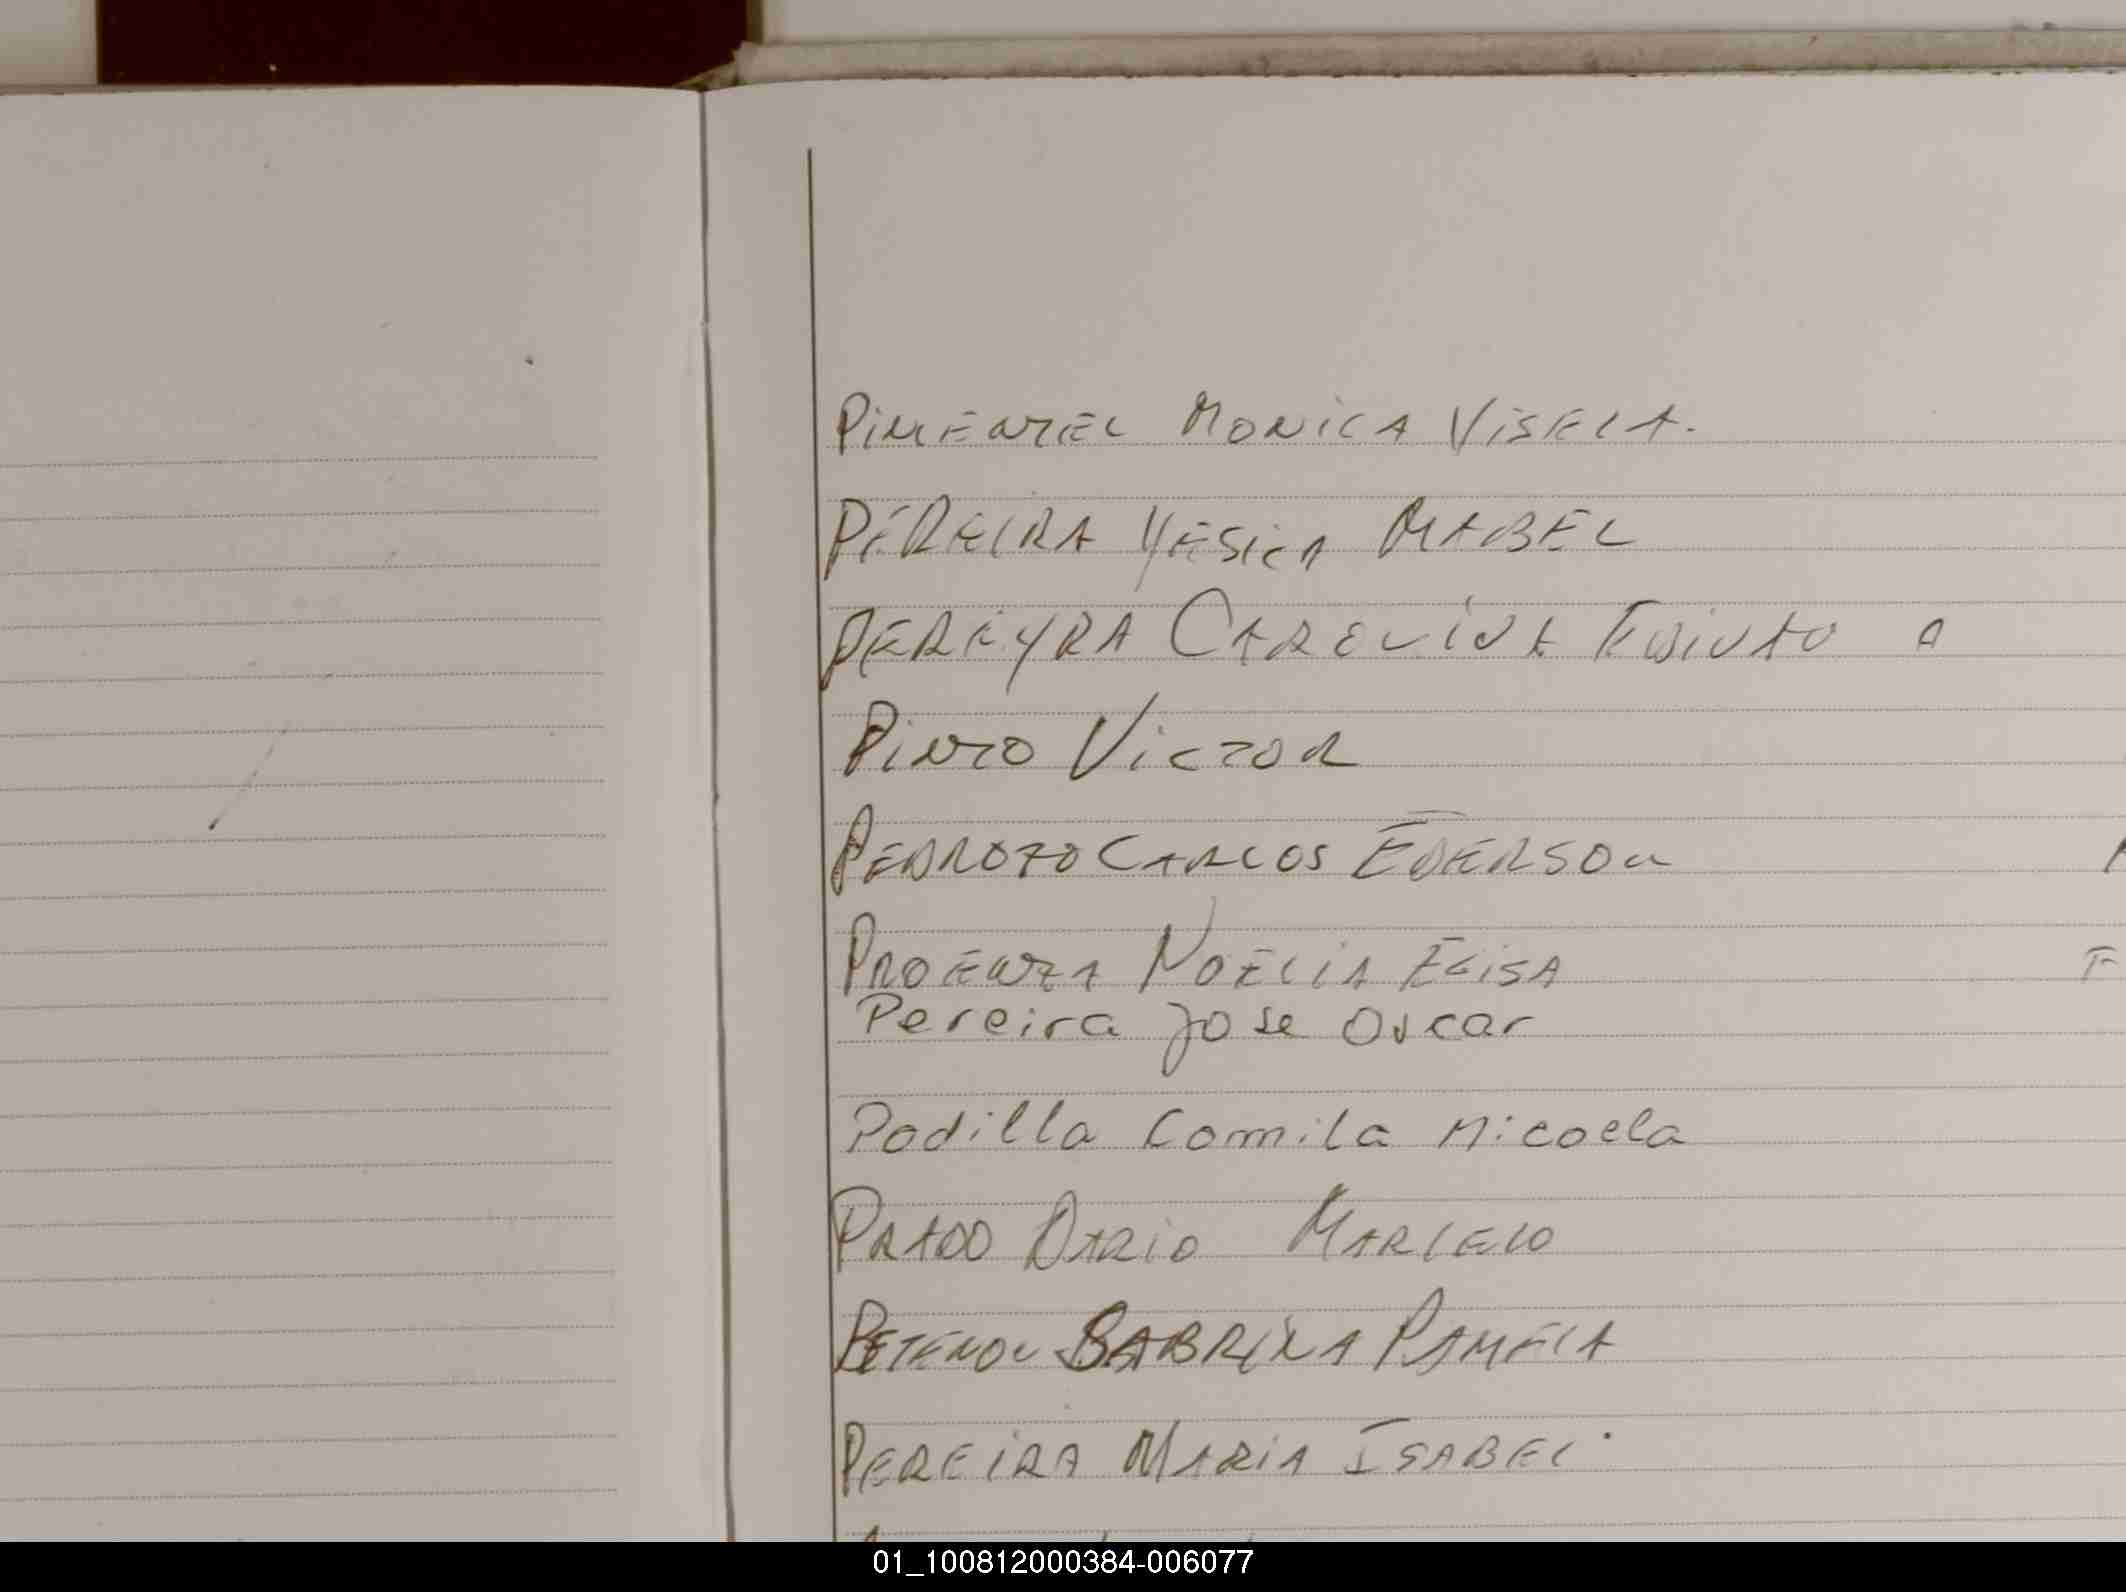 PIMENTEL MONICA VISELA.
PEREIRA YESICA MABEL
PEREYRA CAROLINA
PINTO VICTOR
PEDROZO CARLOS EDERSON
PROENZA NOELIA ELISA
F
Pereira Jose Oscar
Padilla Camila Micaela
PRADO DARIO MARCELO
SABRINA PAMELA
PEREIRA MARIA ISABEL
01_100812000384-006077